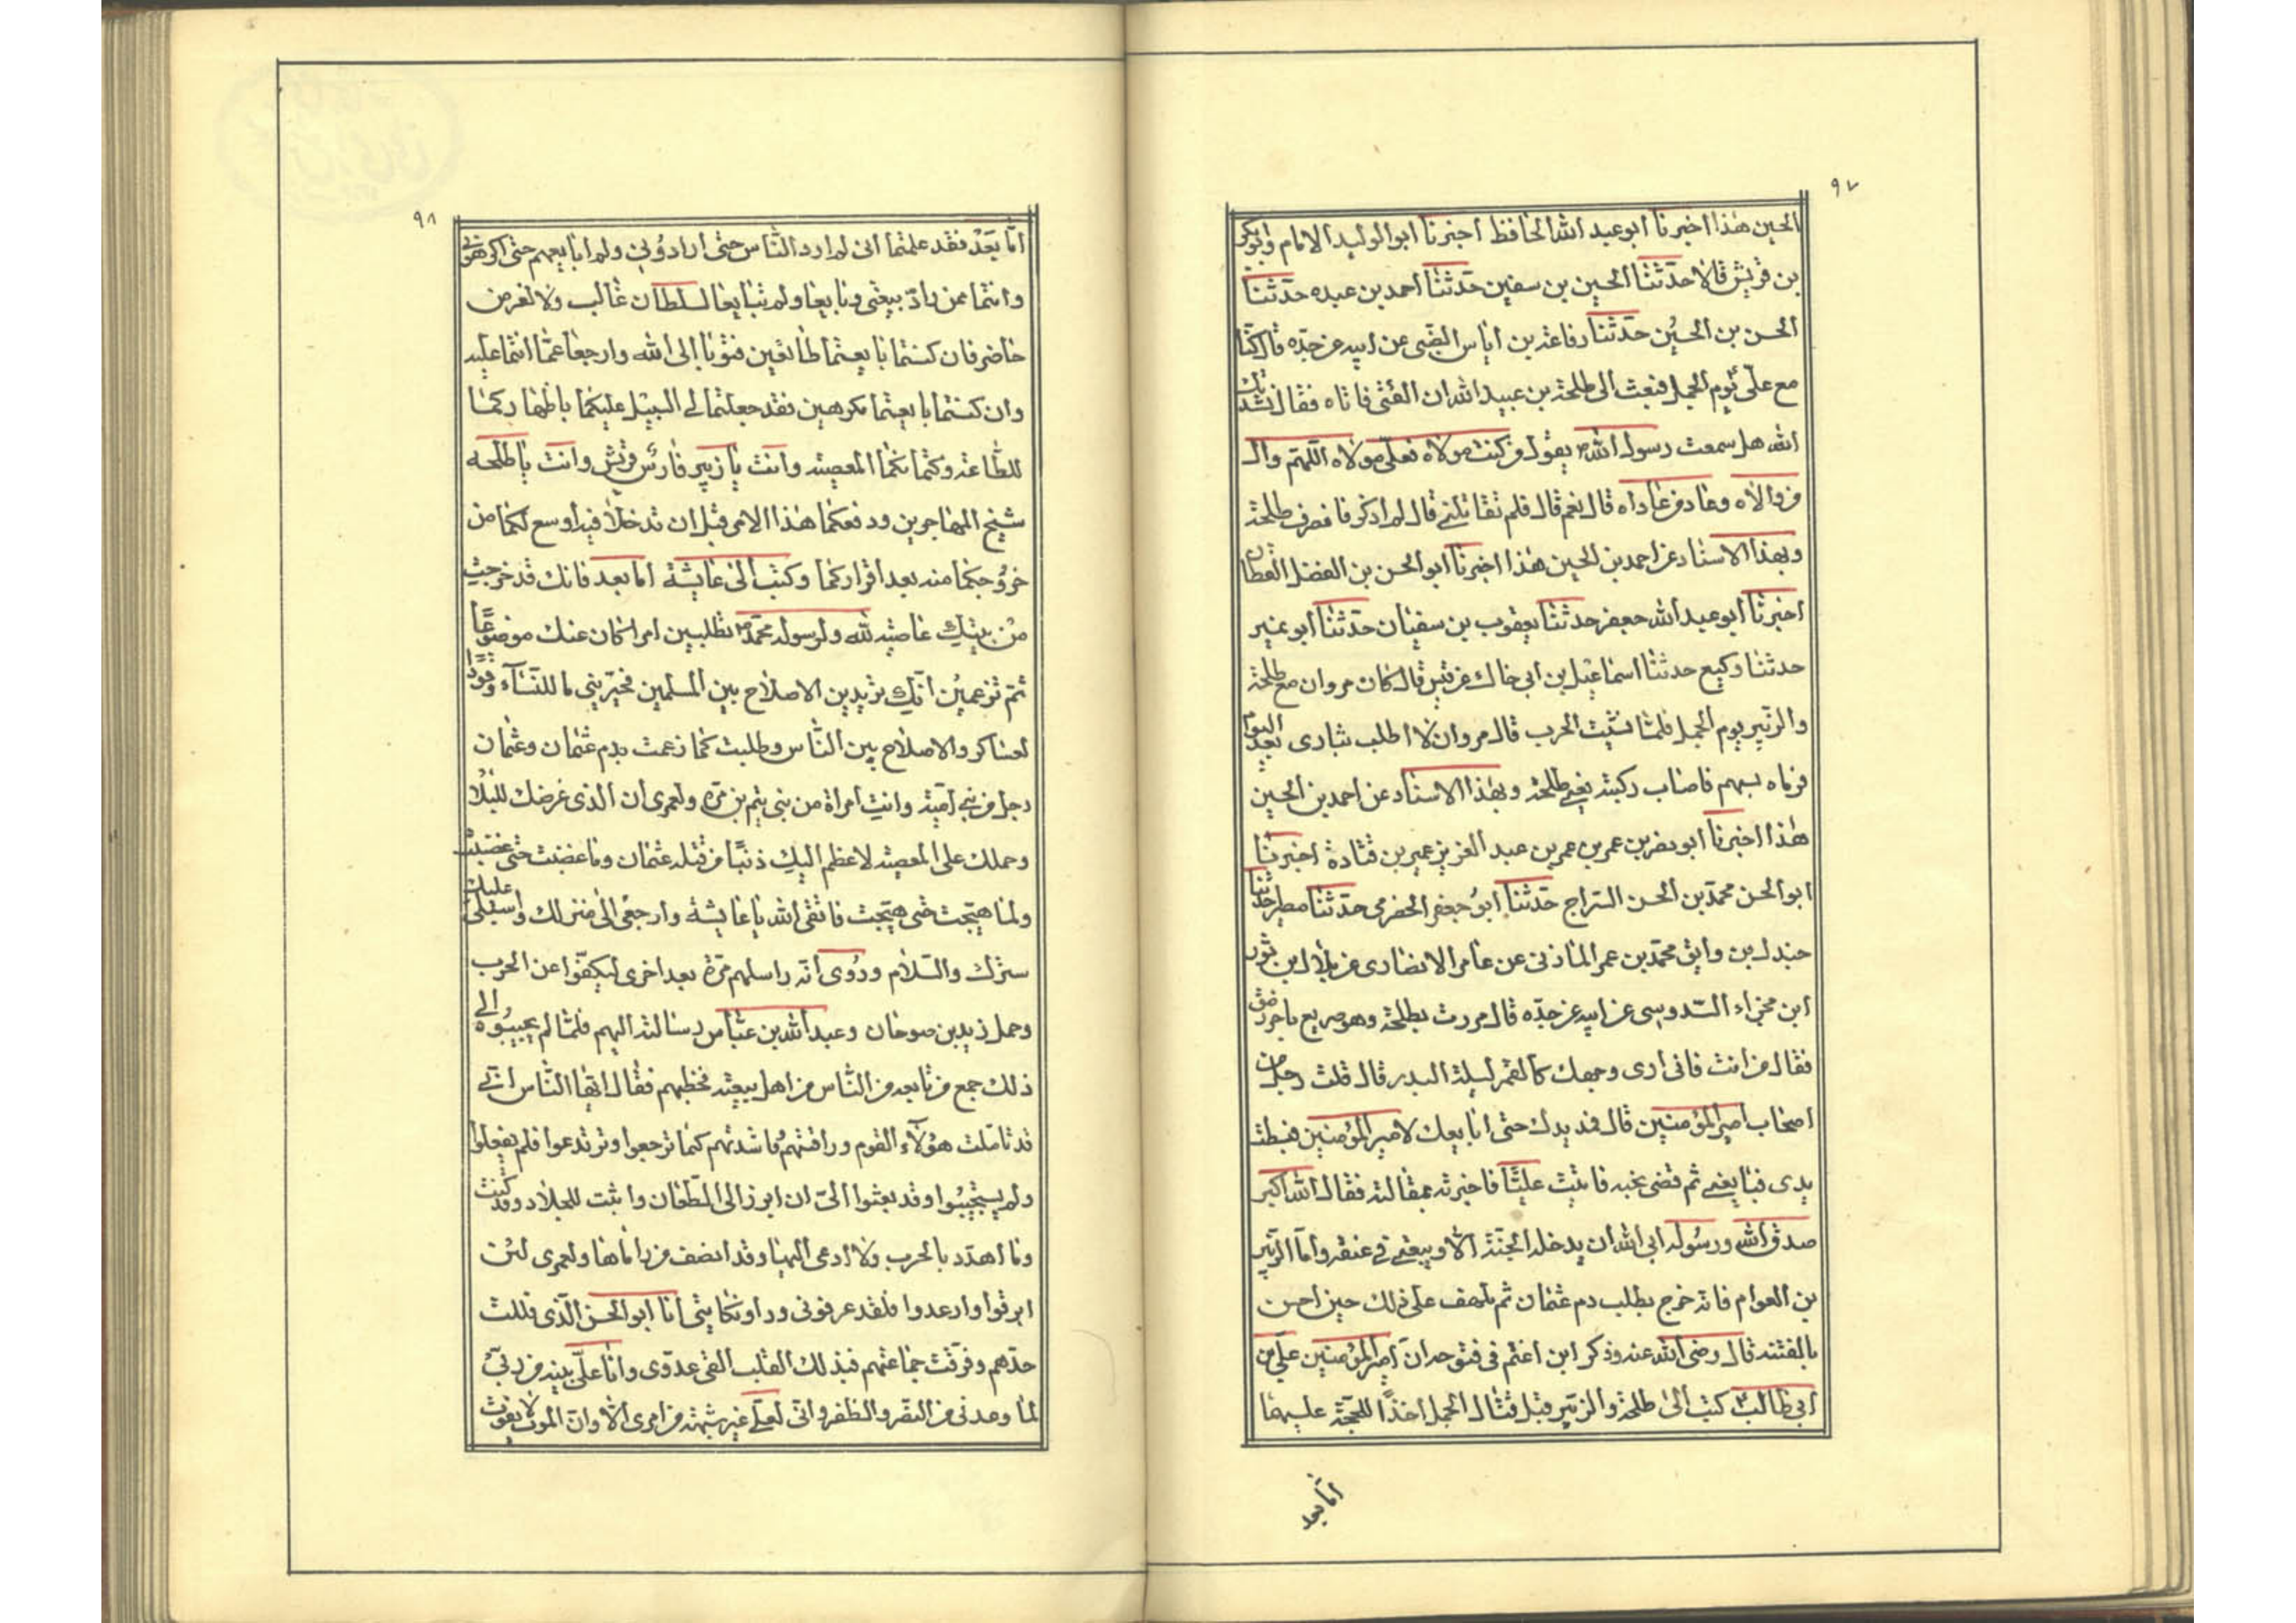 ٩٧
الحين هذا اخبرنا ابو عبد الله الحافظ اخبرنا ابو الوليد الامام وابوبكر
بن قريش قالا حدثنا الحسين بن سفين حدثنا احمد بن عبده حدثنا
الحسن بن الحسين حدثنا رفاعة بن اياس الضبى عن ابيه عن جده قال كنا
مع على يوم الجمل فبعث الى طلحة بن عبيد الله ان الفتى فاتاه فقال نشدتك
الله هل سمعت رسول الله يقول من كنت مولاه فعلى مولاه اللهم وال
من والاه وعاد من عاداه قال نعم قال فلم تقاتلنى قال لم اذكر فانصرف طلحة
وبهذا الاسناد عن احمد بن الحسين هذا اخبرنا ابو الحسن بن الفضل القطان
اخبرنا ابو عبد الله جعفر حدثنا يعقوب بن سفيان حدثنا ابو نمير
حدثنا وكيع حدثنا اسماعيل بن ابى خالد عن قيس قال كان مروان مع طلحة
والزبير يوم الجمل فلما نشبت الحرب قال مروان لا اطلب بثارى بعد اليوم
فرماه بسهم فاصاب ركبته يعنى طلحة وبهذا الاسناد عن احمد بن الحسين
هذا اخبرنا ابو نصر بن عمر بن عمر بن عبد العزيز عمر بن قتادة اخبرنا
ابو الحسن محمد بن الحسن السراج حدثنا ابو جعفر الحضرمى حدثنا مطير حدثنا
جندل بن واثق محمد بن عمر المازنى عن عامر الانصارى عن بلال بن ثور
ابن مجزاء السدوسى عن ابيه عن جده قال مررت بطلحة وهو صريع باخر رمق
فقال من انت فانى ارى وجهك كالقمر ليلة البدر قال قلت رجل من
اصحاب امير المؤمنين قال فمد يدك حتى ابايعك لامير المؤمنين فبسطت
يدى فبايعنى ثم قضى نحبه فاتيت عليا فاخبرته بمقالته فقال الله اكبر
صدق الله ورسوله ابى الله ان يدخله الجنة الا وبيعتى فى عنقه واما الزبير
بن العوام فانه خرج يطلب دم عثمان ثم تلهف على ذلك حين احس
بالفتنة قال رضى الله عنه وذكر ابن اعثم فى فتوحه ان امير المؤمنين على بن
ابى طالب كتب الى طلحة والزبير قبل قتال الجمل اخذا للحجة عليهما
اما بعد
٩٨
اما بعد فقد علمتما انى لم ارد الناس حتى ارادونى ولم ابايعهم حتى اكرهونى
وانتما ممن راد بيعتى وبايعا ولم تبايعا لسلطان غالب ولا لغرض
حاضر فان كنتما بايعتما طائعين فتوبا الى الله وارجعا عما انتما عليه
وان كنتما بايعتما مكرهين فقد جعلتما لى السبيل عليكما باظهاركما
للطاعة وكتمانكما المعصية وانت يا زبير فارس قريش وانت يا طلحه
شيخ المهاجرين ودفعكما هذا الامر قبل ان تدخلا فيه اوسع لكما من
خروجكما منه بعد اقراركما وكتب الى عايشة اما بعد فانك قد خرجت
من بيتك عاصية لله ولرسوله محمد تطلبين امرا كان عنك موضوعا
ثم تزعمين انك تريدين الاصلاح بين المسلمين فخبرينى ما للنساء وقود
لعساكر والاصلاح بين الناس وطلبت كما زعمت بدم عثمان وعثمان
رجل من بنى امية وانت امراة من بنى تيم بن مره ولعمرى ان الذى عرضك للبلاء
وحملك على المعصية لاعظم اليك ذنبا من قتله عثمان وما غضبت حتى غضبت
ولما هيجت حتى هيجت فاتقى الله يا عايشة وارجعى الى منزلك واسبلى عليك
سترك والسلام وروى انه راسلهم مرة بعد اخرى ليكفوا عن الحرب
وحمل زيد بن صوحان وعبد الله بن عباس رسالته اليهم فلما لم يجيبوه الى
ذلك جمع من تابعه من الناس من اهل بيعته فخطبهم فقال ايها الناس انى
قد تاملت هؤلاء القوم وراقبتهم وناشدتهم كيما ترجعوا وترتدعوا فلم يفعلوا
ولم يستجيبوا وقد بعثوا الى ان ابرز الى الطعان واثبت للجلاد وقد كنت
وما اهدد بالحرب ولا ادعى اليها وقد انصف من راماها ولعمرى لئن
ابرقوا وارعدوا فلقد عرفونى وراو نكايتى انا ابو الحسن الذى فللت
حدهم وفرقت جماعتهم فبذلك القلب القى عدوى وانا على بينة من ربى
لما وعدنى من النصر والظفر وانى لعلى غير شبهة من امرى الا وان الموت لا يفوت